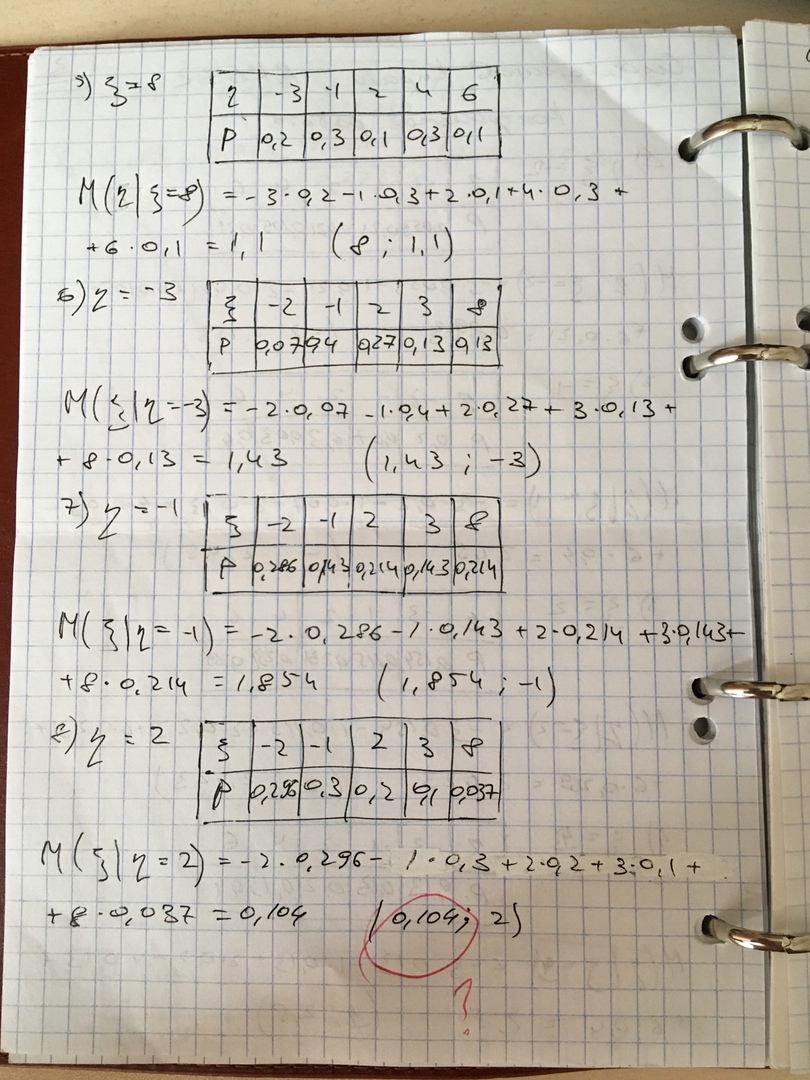 5) ξ=8
η -3 -1 2 4 6
P 0,2 0,3 0,1 0,3 0,1
M(η|ξ=8) = -3·0,2-1·0,3+2·0,1+4·0,3+
+6·0,1 = 1,1 (8; 1,1)
6) η = -3
ξ -2 -1 2 3 8
P 0,07 0,4 0,27 0,13 0,13
M(ξ|η=-3) = -2·0,07 -1·0,4+2·0,27+3·0,13+
+8·0,13 = 1,43 (1,43; -3)
7) η = -1
ξ -2 -1 2 3 8
P 0,286 0,143 0,214 0,143 0,214
M(ξ|η=-1) = -2·0,286-1·0,143+2·0,214+3·0,143+
+8·0,214 = 1,854 (1,854; -1)
8) η = 2
ξ -2 -1 2 3 8
P 0,296 0,3 0,2 0,1 0,037
M(ξ|η=2) = -2·0,296- 1·0,3+2·0,2+3·0,1+
+8·0,037 = 0,104 (0,104; 2)
?